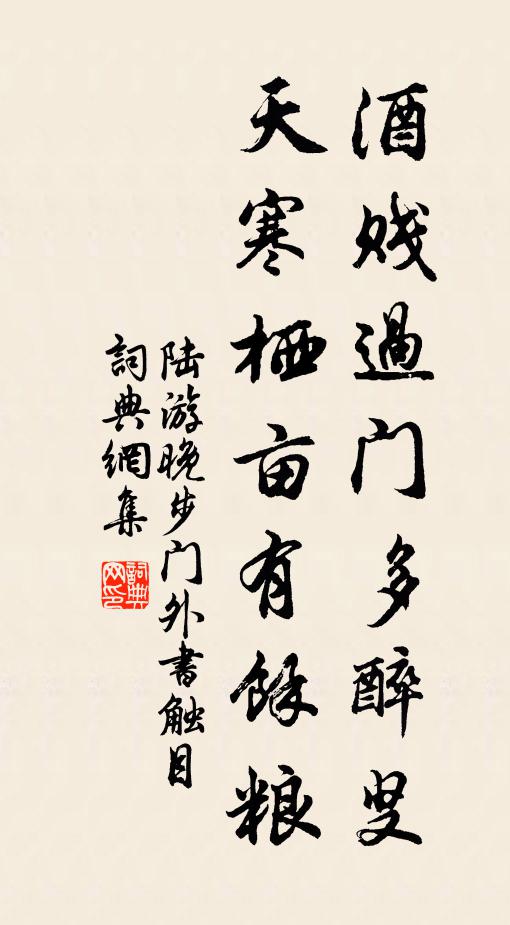 酒贱過门多醉叟
天寒栖亩有餘粮
陆游晚步门外書触目
詞典網集
詞典
网印